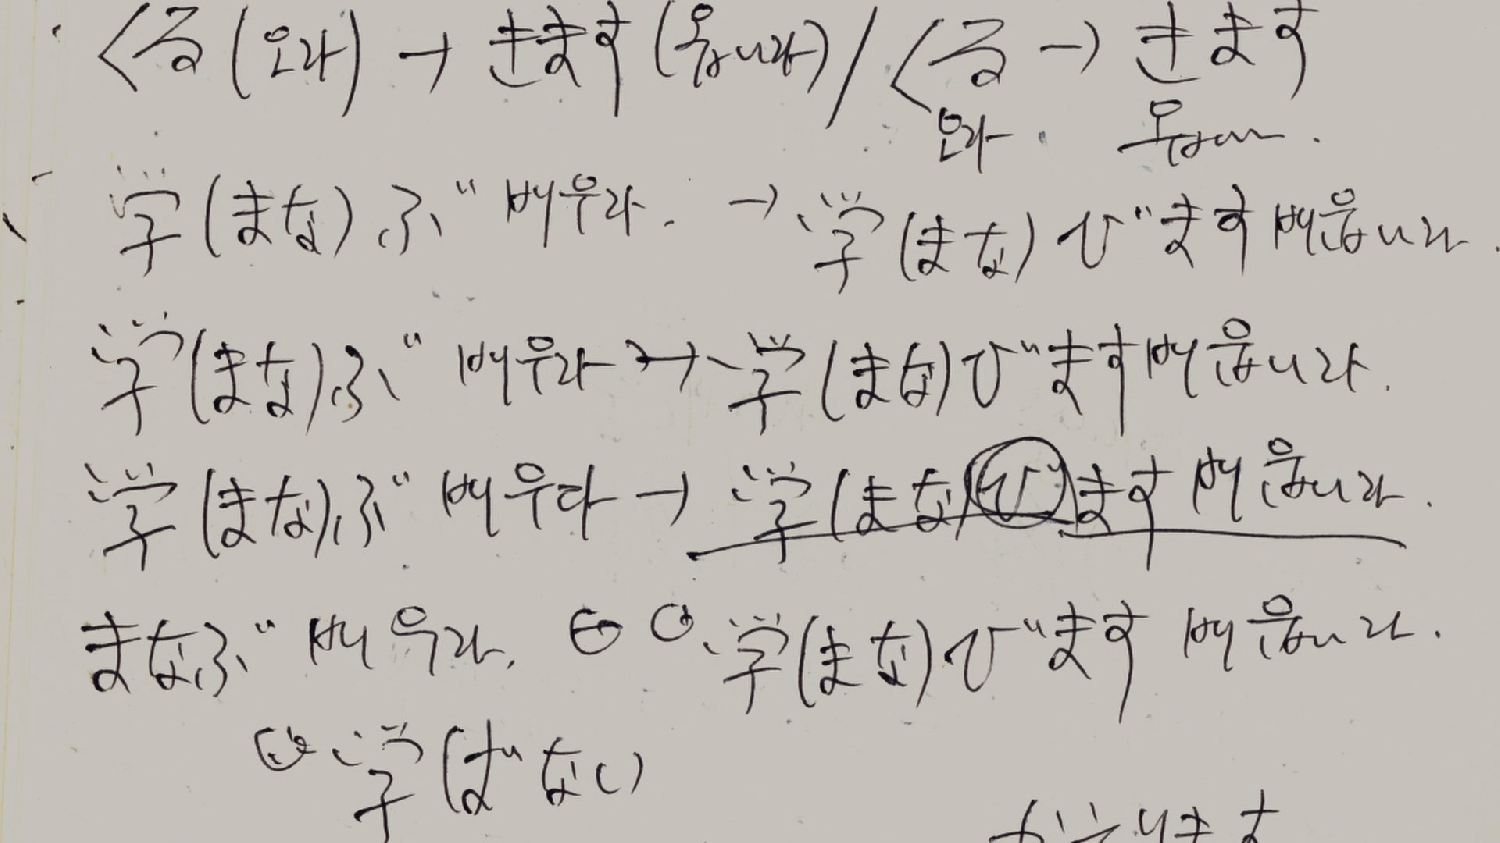 くる (오다) → きます (옵니다) / くる → きます
오다. 옵니다.
学(まな)ぶ 배우다. → 学(まな)びます 배웁니다.
学(まな)ぶ 배우다 → 学(まな)びます 배웁니다.
学(まな)ぶ 배우다 → 学(まな)びます 배웁니다.
まなぶ 배우다. 学(まな)びます 배웁니다.
学(ばない